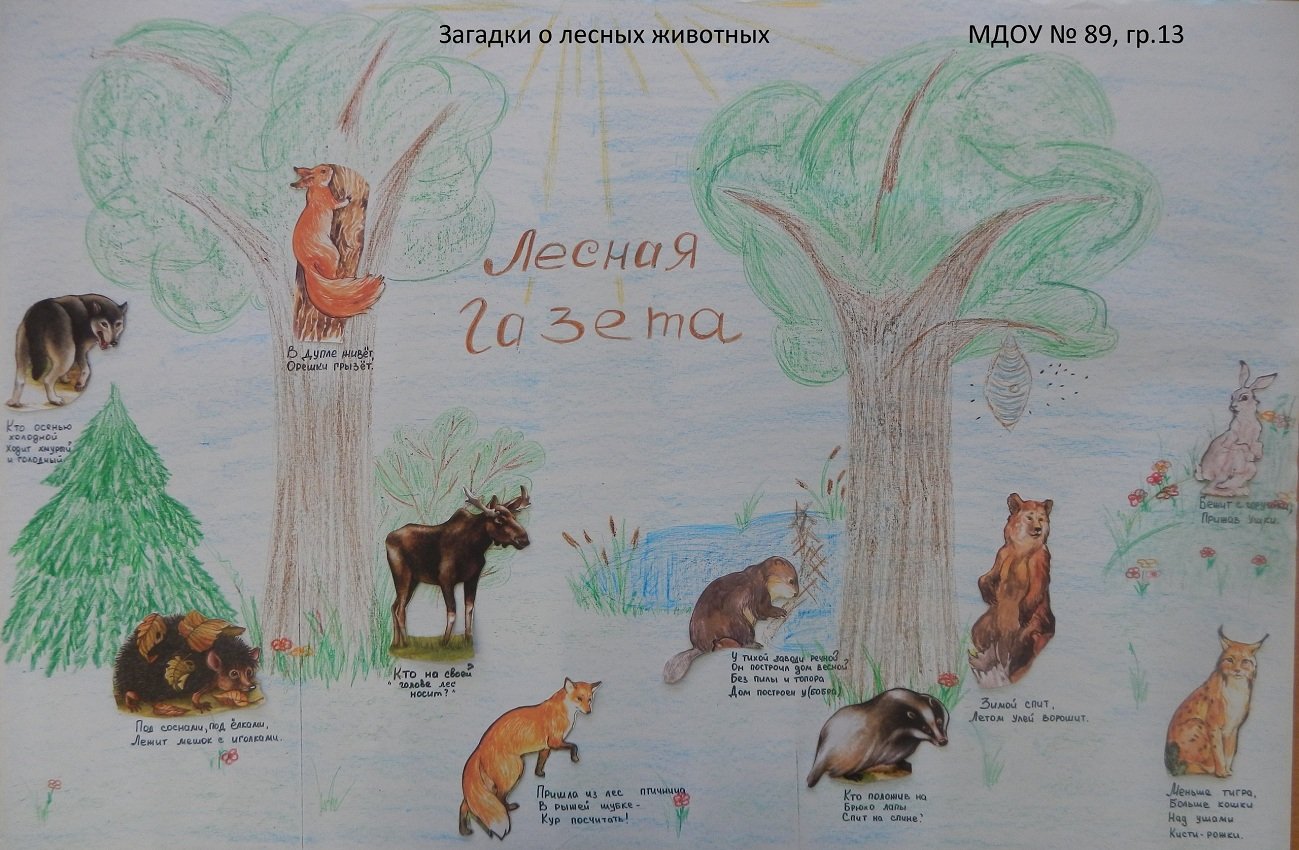 Загадки о лесных животных
МДОУ № 89, гр.13
Лесная
газета
В дупле живёт,
Орешки грызёт.
Кто осенью
холодной
Ходит хмурый
и голодный
Бежит с горушки,
Прижав ушки.
Кто на своей
"голове лес
носит?"
У тихой заводи речной
Он построил дом весной
Без пилы и топора
Дом построен у(бобра)
Под соснами, под ёлками,
Лежит мешок с иголками.
Зимой спит,
Летом улей ворошит.
Пришла из лес птичница
В рыжей шубке -
Кур посчитать!
Кто положив на
Брюхо лапы
Спит на спине?
Меньше тигра,
Больше кошки
Над ушами
Кисти-рожки.